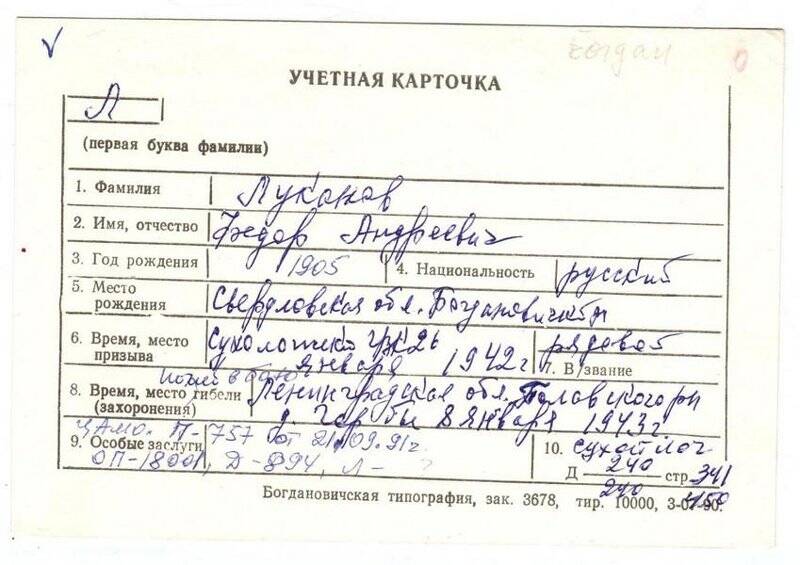 Богдан
УЧЕТНАЯ КАРТОЧКА
Л
(первая буква фамилии)
1. Фамилия Луканов
2. Имя, отчество Федор Андреевич
3. Год рождения 1905 4. Национальность русский
5. Место рождения Свердловская обл. Богдановичский
6. Время, место призыва Сухоложский 26 января 1942г рядовой
7. В/звание
погиб в бою
8. Время, место гибели (захоронения) Ленинградская обл.
8 января 1943г
ЦАМО. П-757 от 21.09.91г.
9. Особые заслуги
ОП-18001, Д-894, Л-
10. сухой лог
Д 240 стр 341
240 150
Богдановичская типография, зак. 3678, тир. 10000, 3-07-90.